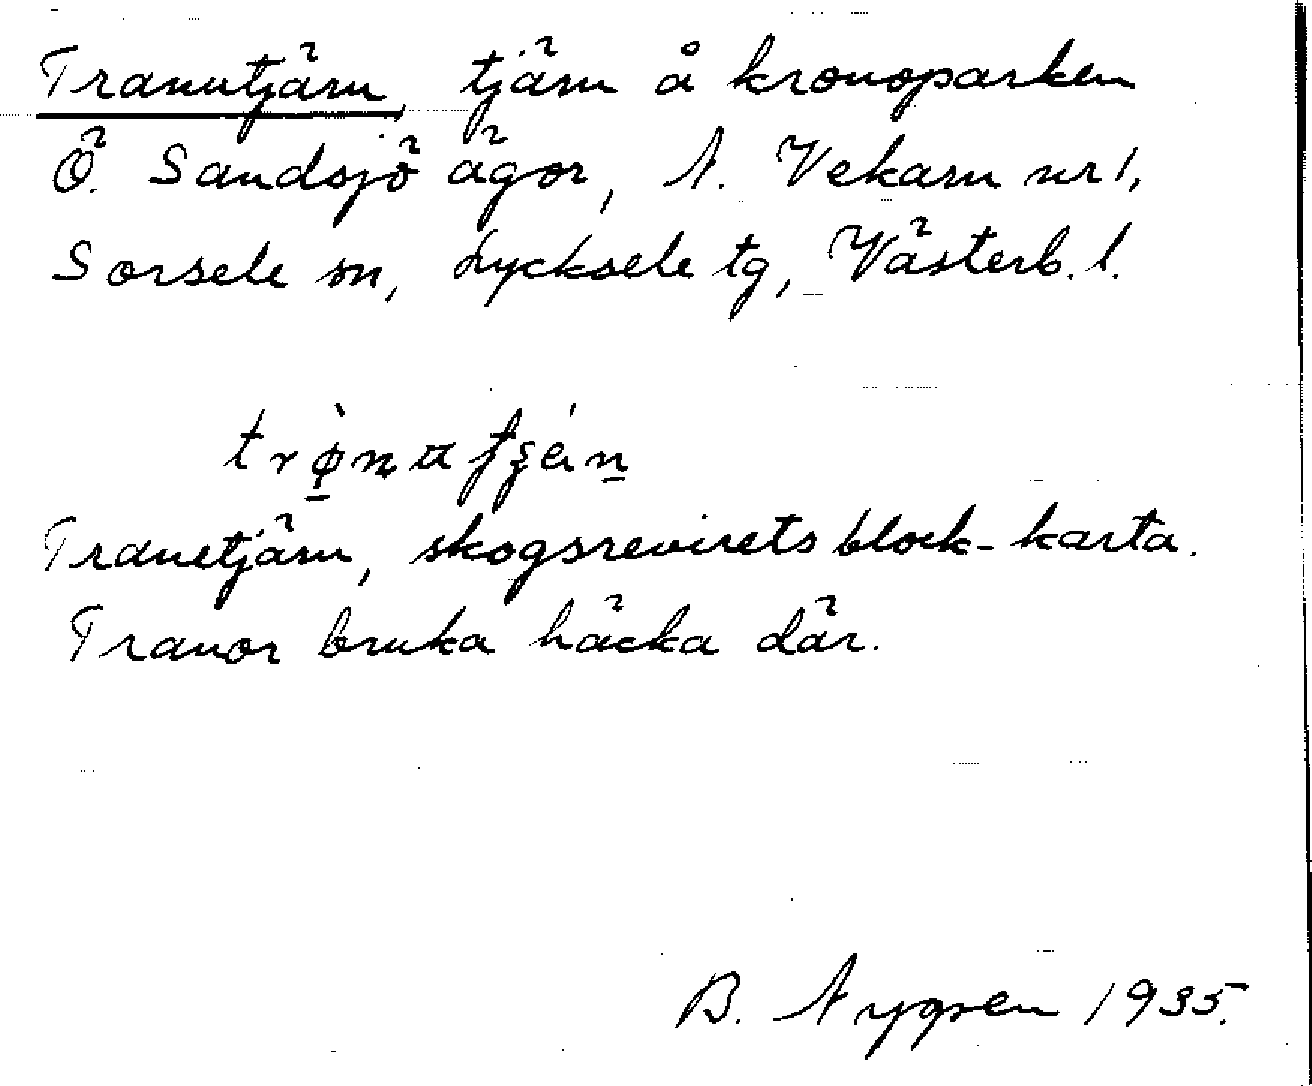 Tranutjärn, tjärn å kronoparken
Ö. Sandsjö ägor, N. Vekarn nr 1,
Sorsele sn, Lycksele tg, Västerb. l.
Tranetjärn, skogsrevirets block-karta.
Tranor bruka häcka där.
B. Nygren 1935.